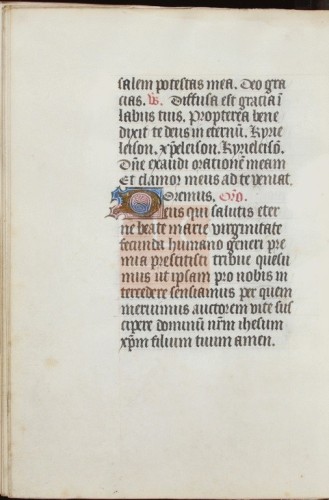 salem potestas mea. Deo gra
cias. V̄s. Diffusa est gracia ī
labiis tuis. Propterea bene
dixit te deus in eternū. Kyrie
leison. xp̄eleison. Kyrieleisō.
Dn̄e exaudi orationē meam
Et clamor meus ad te veniat.
Oremus. Orō.
Deus qui salutis eter
ne beate marie virginitate
fecunda humano generi pre
mia prestitisti tribue quesu
mus ut ipsam pro nobis in
tercedere senciamus per quem
meruimus auctorem vite sus
cipere dominū nr̄m ihesum
xp̄m filium tuum amen.